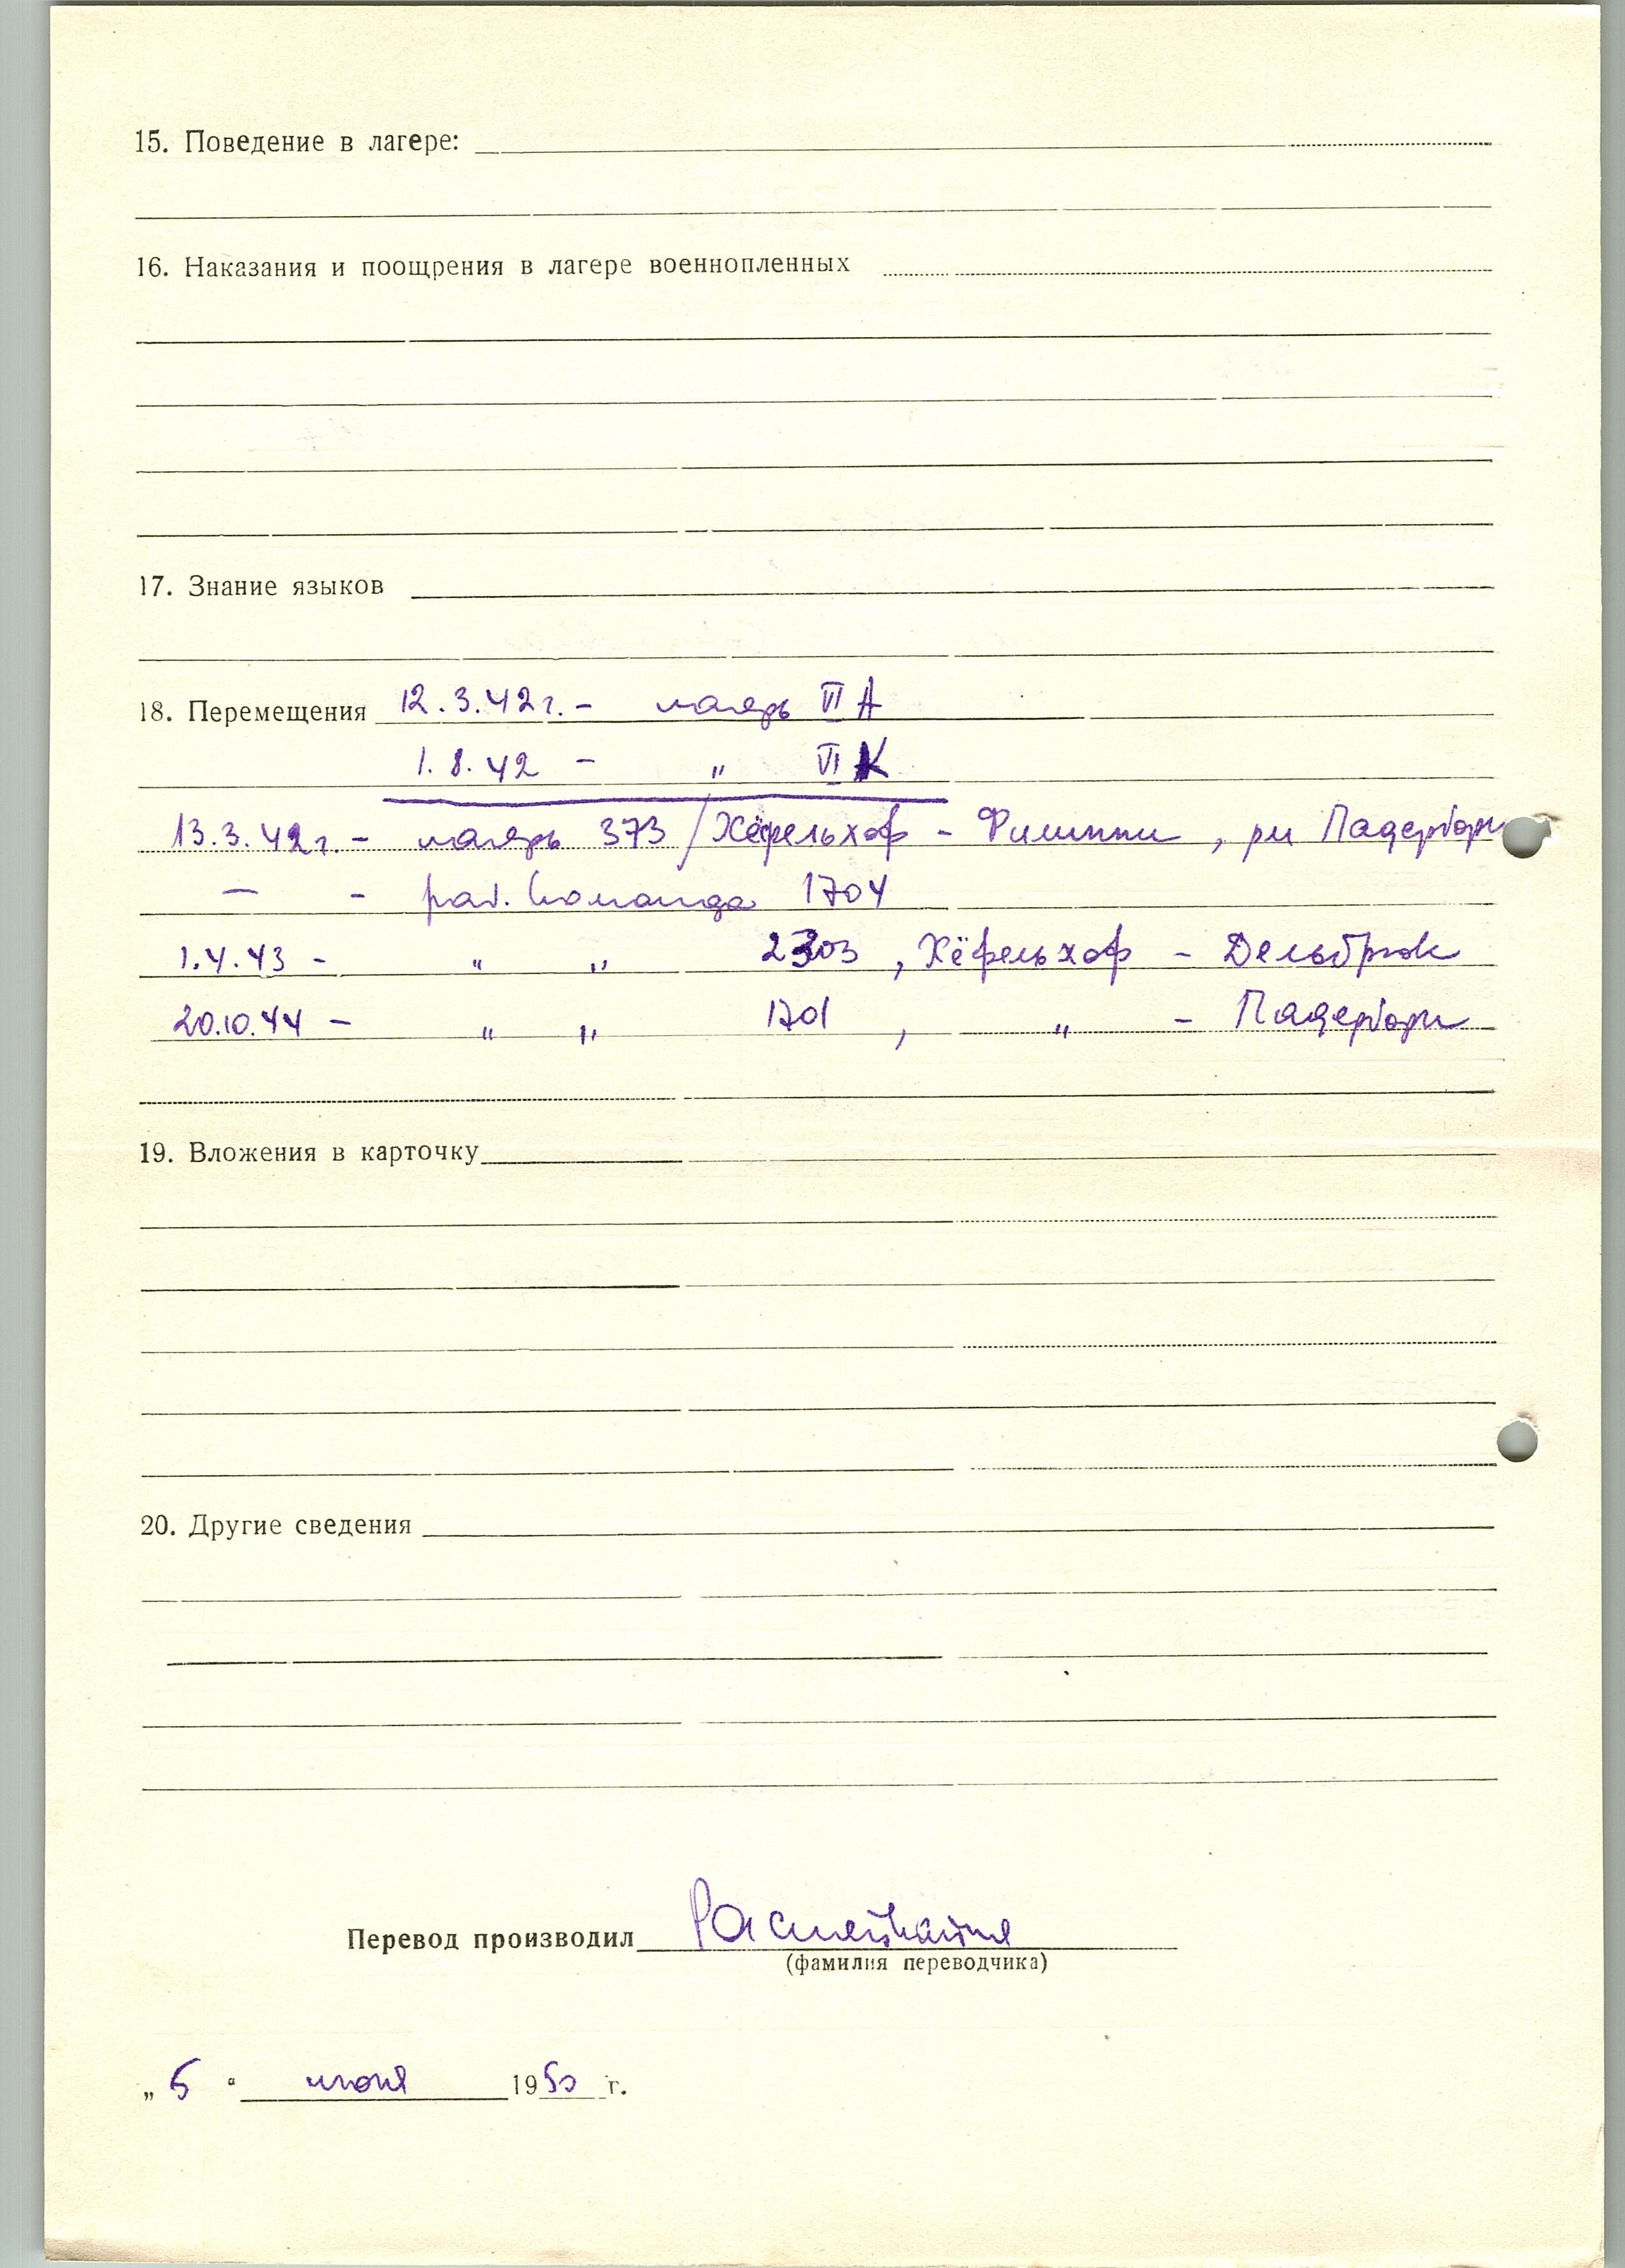 15. Поведение в лагере:
16. Наказания и поощрения в лагере военнопленных
17. Знание языков
18. Перемещения 12.3.42г. - лагерь VI А
1.8.42 - " VI К
13.3.42г. - лагерь 373/Хёфельхоф - Филиппи, рн Падерборн
— - раб. команда 1704
1.4.43 - " " 2303, Хёфельхоф - Дельбрюк
20.10.44 - " " 1701, " - Падерборн
19. Вложения в карточку
20. Другие сведения
Перевод производил
(фамилия переводчика)
„ 5 " июня 1950 г.